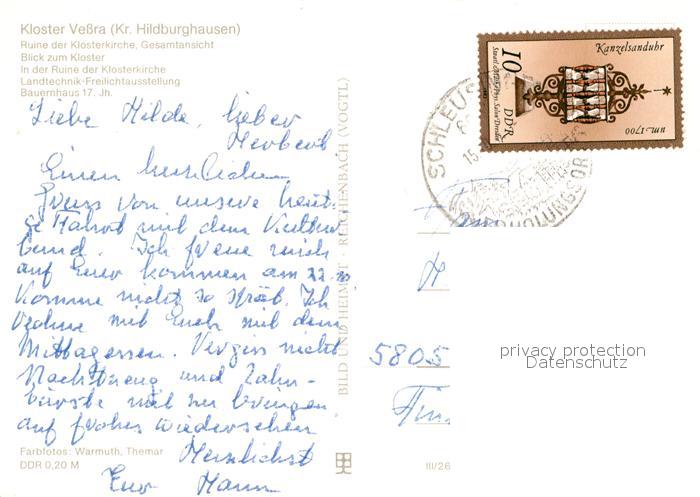 Kloster Veßra (Kr. Hildburghausen)
Ruine der Klosterkirche, Gesamtansicht
Blick zum Kloster
In der Ruine der Klosterkirche
Landtechnik-Freilichtausstellung
Bauernhaus 17. Jh.
Liebe Hilde, lieber
Herbert
Einen herzlichen
Gruss von unsere heuti-
ge Fahrt mit dem Kultur
bund. Ich freue mich
auf Euer kommen am 22.
Komme nicht so spät. Ich
rechne mit Euch mit dem
Mittagessen. Vergiss nicht
Nachtzeug und Zahn-
bürste mit zu bringen
auf frohes wiedersehen
Herzlichst
Euer
Farbfotos: Warmuth, Themar
DDR 0,20 M
BILD UND HEIMAT · REICHENBACH (VOGTL)
III/26
Kanzelsanduhr
10
DDR
um 1700
SCHLEUS
15.
ERHOLUNGSOR
5805
privacy protection
Datenschutz